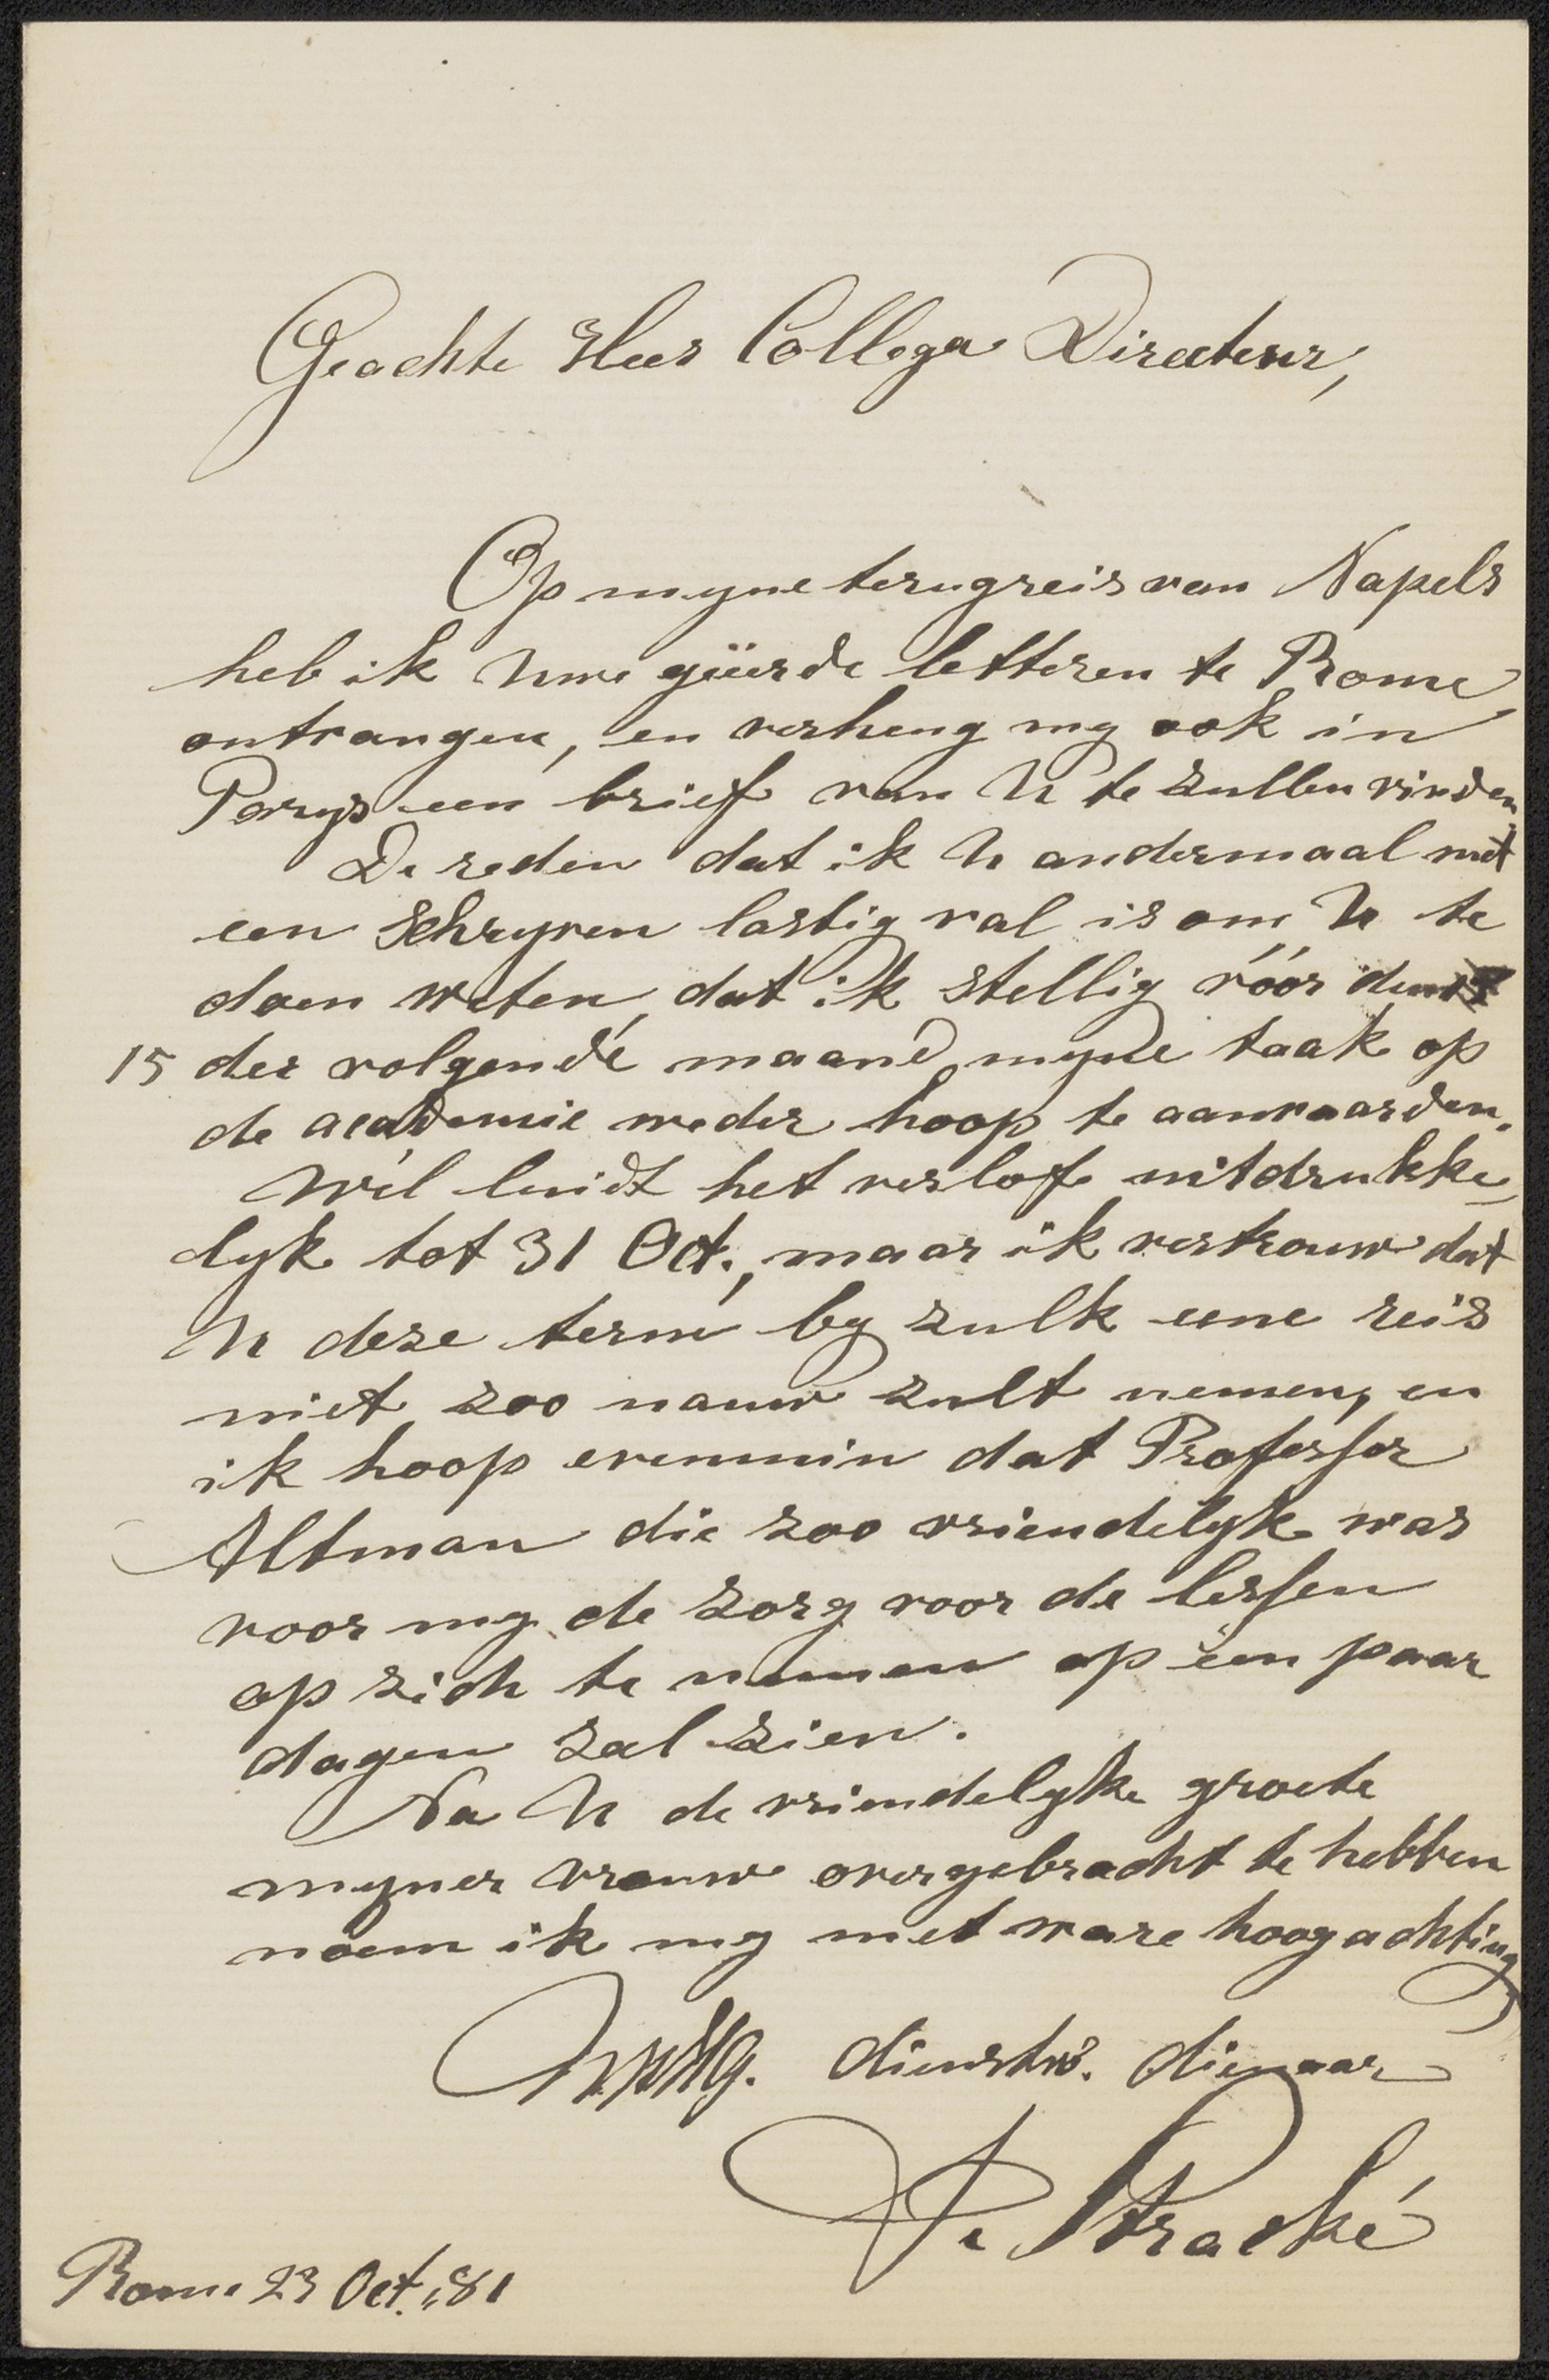 Geachte Heer Collega Directeur,
Op myne terugreis van Napels
heb ik Uwe geëerde letteren te Rome
ontvangen, en verheug my ook in
Parys een brief van U te zullen vinden.
De reden dat ik U andermaal met
een schryven lastig val is om U te
doen weten, dat ik stellig vóór den
15 der volgende maand myne taak op
de academie weder hoop te aanvaarden.
Wel luidt het verlof uitdrukke-
lyk tot 31 Oct., maar ik vertrouw dat
U deze term by zulk eene reis
niet zoo nauw zult nemen, en
ik hoop evenmin dat Professor
Altman die zoo vriendelyk was
voor my de zorg voor de lessen
op zich te nemen op een paar
dagen zal zien.
Na U de vriendelyke groete
myner vrouw overgebracht te hebben
noem ik my met ware hoogachting
UwEdg. dienstw. dienaar
F. Stracké
Rome 23 Oct. 81